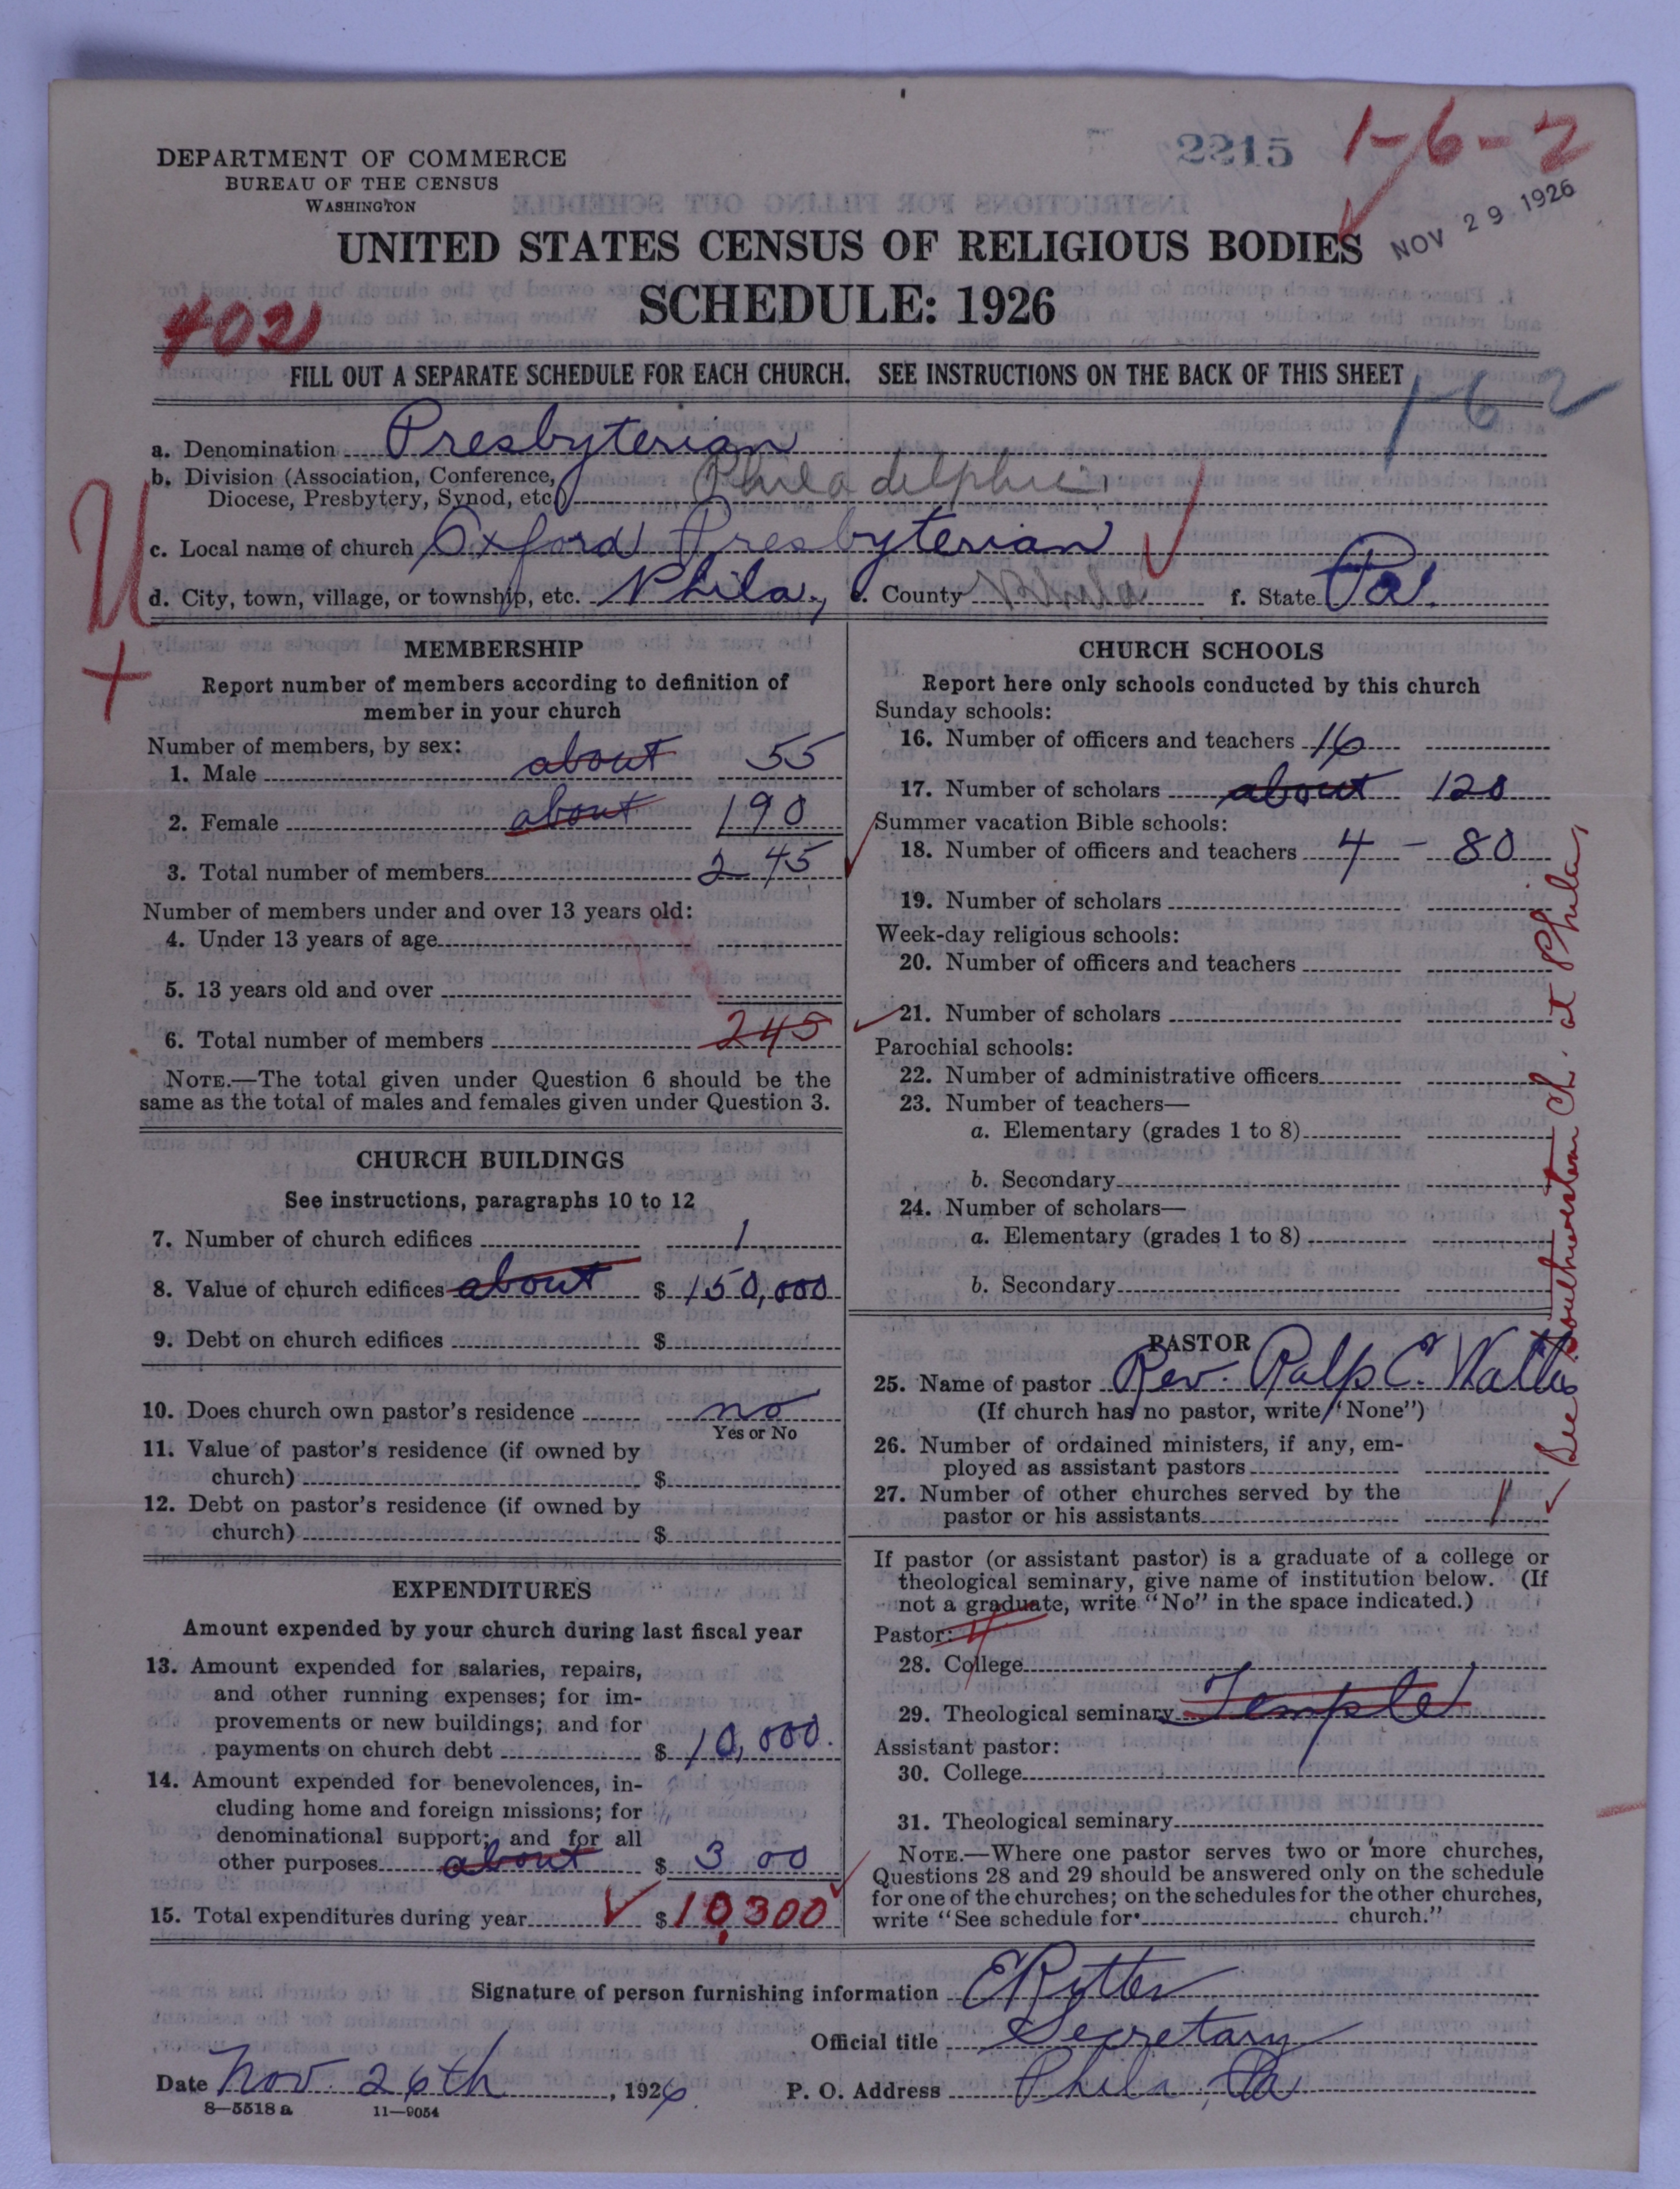 DEPARTMENT OF COMMERCE
BUREAU OF THE CENSUS
WASHINGTON
2215
1-6-2
NOV 29 1926
UNITED STATES CENSUS OF RELIGIOUS BODIES
SCHEDULE: 1926
402
FILL OUT A SEPARATE SCHEDULE FOR EACH CHURCH. SEE INSTRUCTIONS ON THE BACK OF THIS SHEET
1-6 2
a. Denomination Presbyterian
b. Division (Association, Conference,
Diocese, Presbytery, Synod, etc.) Philadelphia
c. Local name of church Oxford Presbyterian
d. City, town, village, or township, etc. Phila., e. County Phila f. State Pa.
U
+
MEMBERSHIP
Report number of members according to definition of
member in your church
Number of members, by sex:
1. Male about 55
2. Female about 190
3. Total number of members 245
Number of members under and over 13 years old:
4. Under 13 years of age
5. 13 years old and over
6. Total number of members 245
NOTE.—The total given under Question 6 should be the
same as the total of males and females given under Question 3.
CHURCH BUILDINGS
See instructions, paragraphs 10 to 12
7. Number of church edifices 1
8. Value of church edifices about $ 150,000
9. Debt on church edifices $
10. Does church own pastor's residence no
Yes or No
11. Value of pastor's residence (if owned by
church) $
12. Debt on pastor's residence (if owned by
church) $
EXPENDITURES
Amount expended by your church during last fiscal year
13. Amount expended for salaries, repairs,
and other running expenses; for im-
provements or new buildings; and for
payments on church debt $ 10,000.
14. Amount expended for benevolences, in-
cluding home and foreign missions; for
denominational support; and for all
other purposes about $ 300
15. Total expenditures during year $ 10,300
CHURCH SCHOOLS
Report here only schools conducted by this church
Sunday schools:
16. Number of officers and teachers 16
17. Number of scholars about 120
Summer vacation Bible schools:
18. Number of officers and teachers 4 - 80
19. Number of scholars
Week-day religious schools:
20. Number of officers and teachers
21. Number of scholars
Parochial schools:
22. Number of administrative officers
23. Number of teachers—
a. Elementary (grades 1 to 8)
b. Secondary
24. Number of scholars—
a. Elementary (grades 1 to 8)
b. Secondary
PASTOR
25. Name of pastor Rev. Ralp C.
(If church has no pastor, write "None")
26. Number of ordained ministers, if any, em-
ployed as assistant pastors
27. Number of other churches served by the
pastor or his assistants 1
If pastor (or assistant pastor) is a graduate of a college or
theological seminary, give name of institution below. (If
not a graduate, write "No" in the space indicated.)
Pastor:
28. College
29. Theological seminary Temple
Assistant pastor:
30. College
31. Theological seminary
NOTE.—Where one pastor serves two or more churches,
Questions 28 and 29 should be answered only on the schedule
for one of the churches; on the schedules for the other churches,
write "See schedule for church."
See Southwestern Ch. at Phila,
Signature of person furnishing information E Rytter
Official title Secretary
Date Nov. 26th, 1926. P. O. Address Phila, Pa
8—5518 a 11—9054